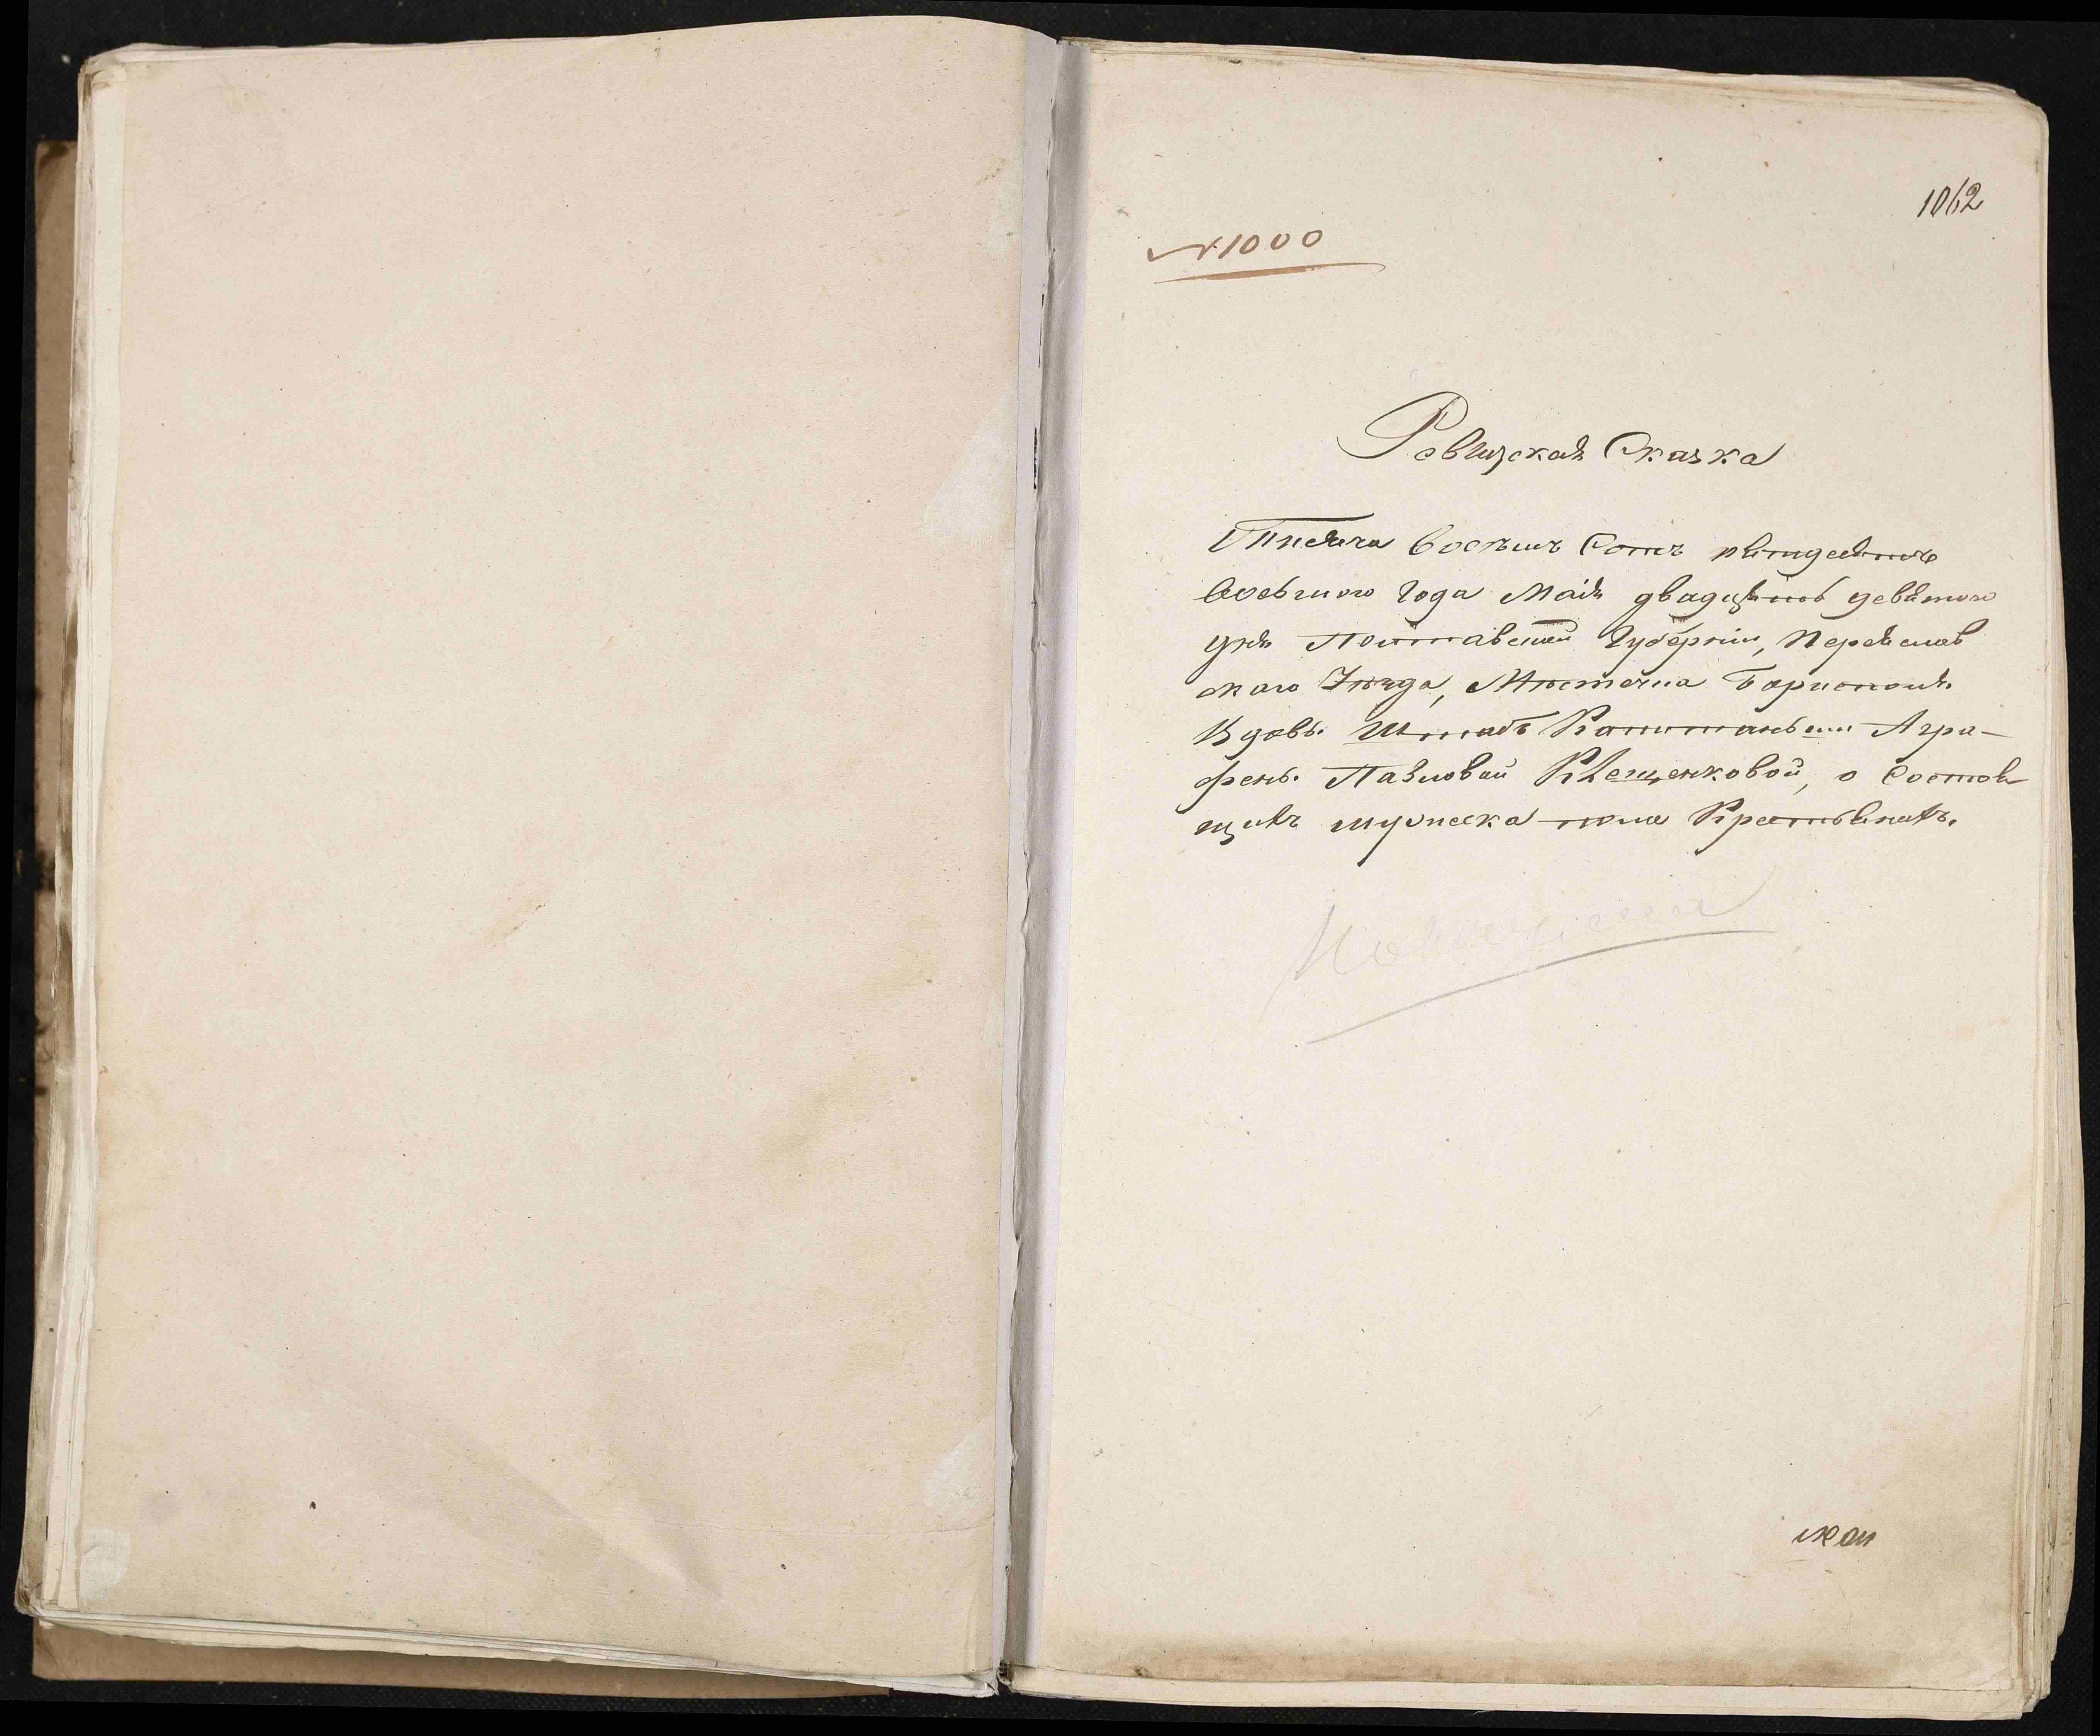 1062
№ 1000
Ревизская Сказка
Тысяча восемь Сотъ пятдесятъ
восьмого Года Маія двадцять девятого
дня Полтавской Губерніи, Переяслав
скаго Уезда, Местечка Борисполя
Вдовы Штабъ Капитаньши Агра-
фены Павловой Клещенковой, о Состоя
щихъ мужеска пола Крестьянахъ.